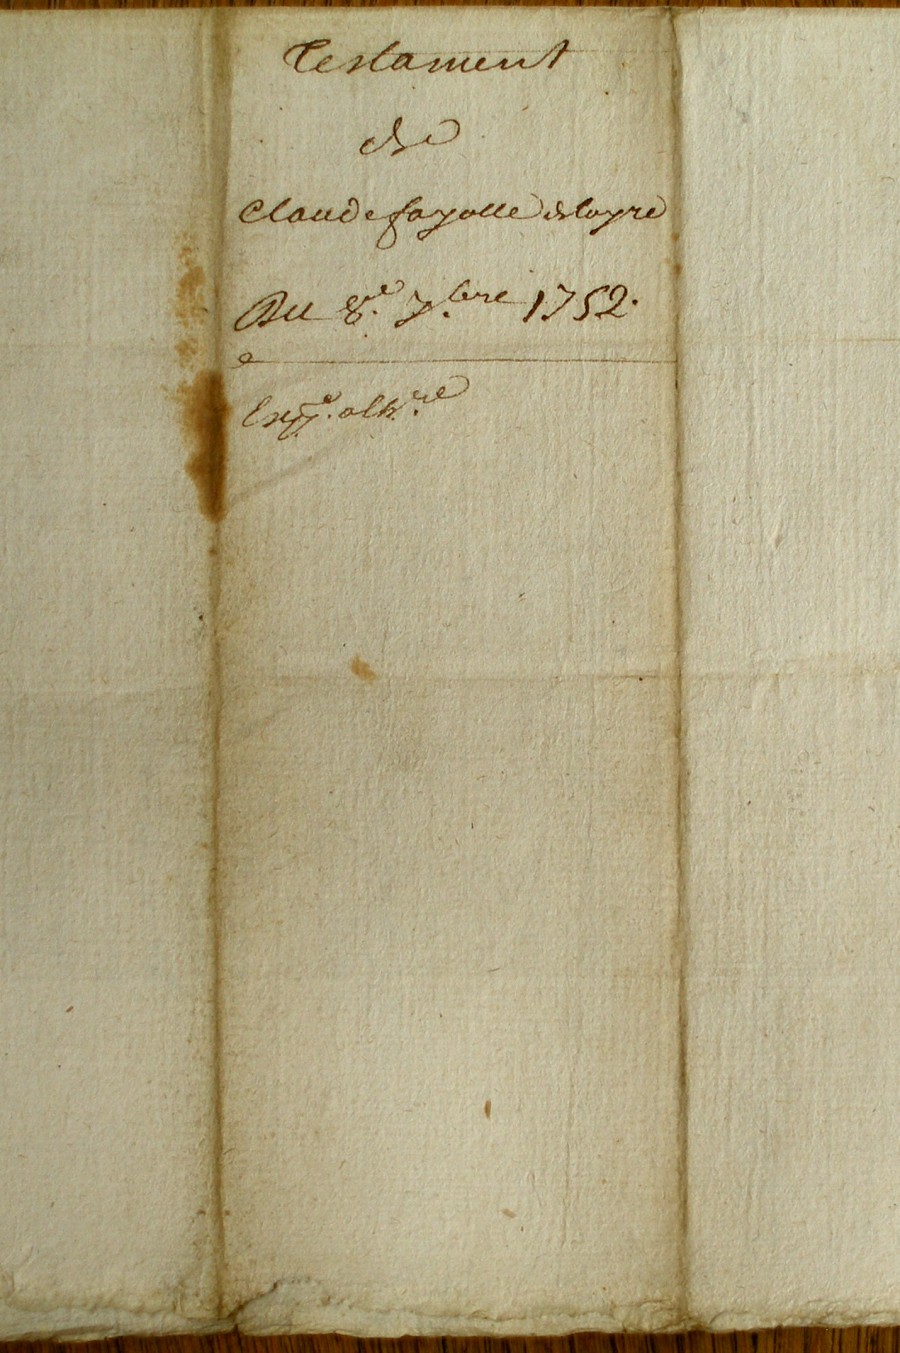 Testament
de
Claude fayolle de loyre
Du 8.e 7.bre 1752.